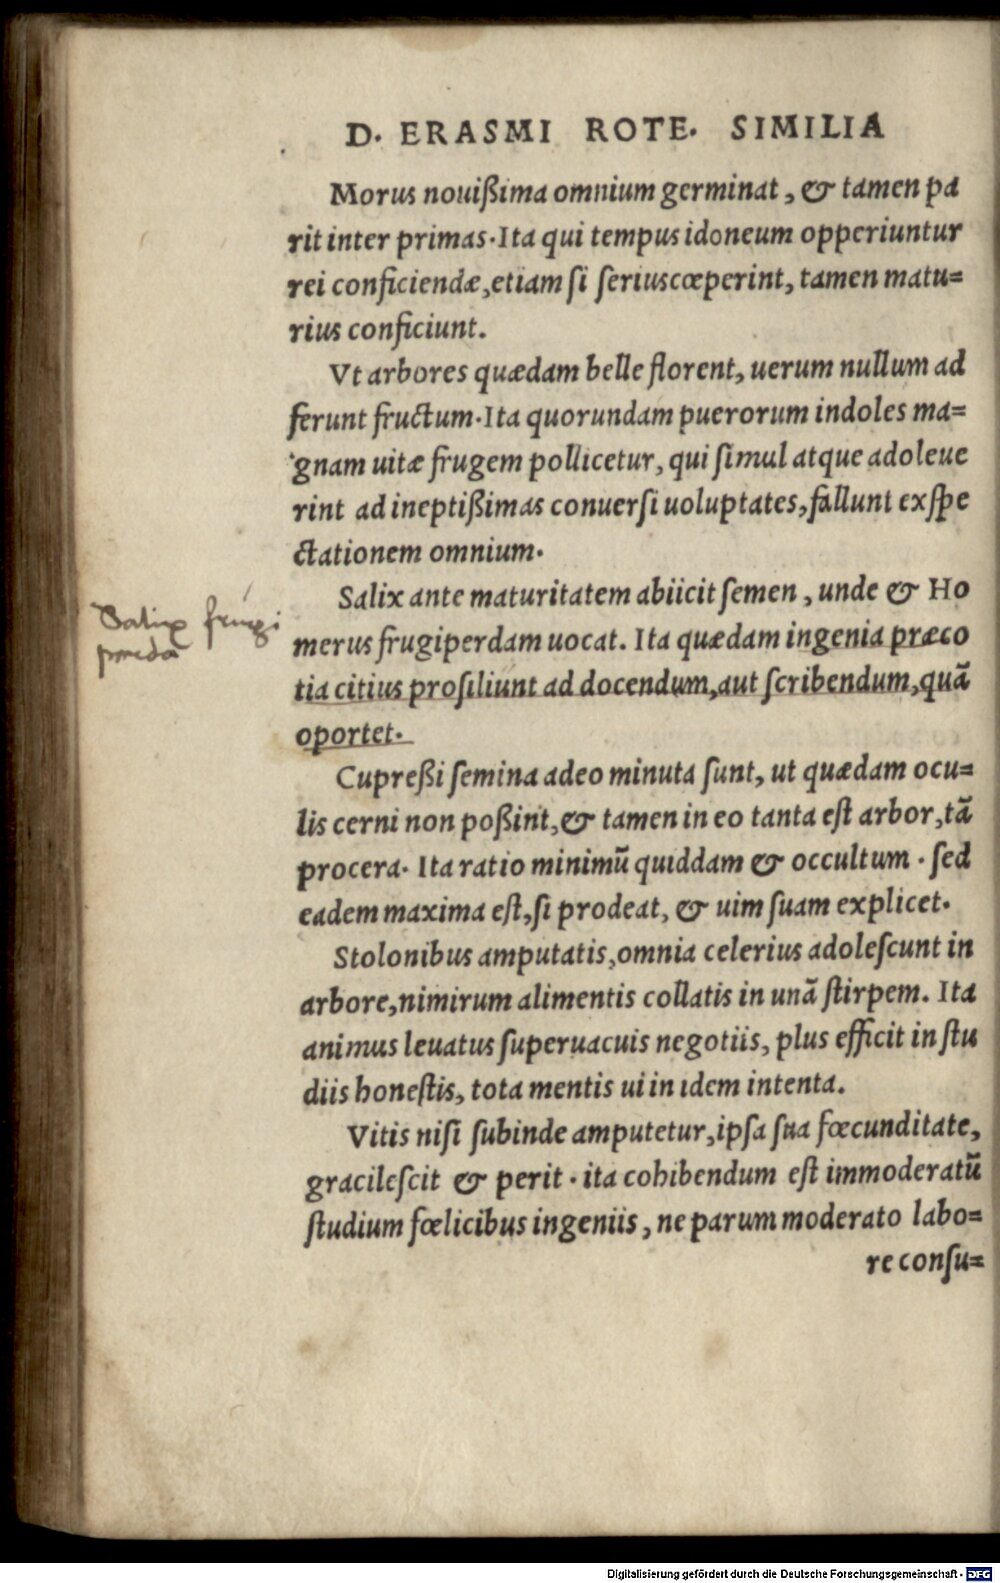 D. ERASMI ROTE. SIMILIA
Morus nouißima omnium germinat, & tamen pa
rit inter primas. Ita qui tempus idoneum opperiuntur
rei conficiendæ, etiam si seriuscœperint, tamen matu=
rius conficiunt.
Vt arbores quædam belle florent, uerum nullum ad
ferunt fructum. Ita quorundam puerorum indoles ma=
gnam uitæ frugem pollicetur, qui simul atque adoleue
rint ad ineptißimas conuersi uoluptates, fallunt exspe
ctationem omnium.
Salix ante maturitatem abiicit semen, unde & Ho
merus frugiperdam uocat. Ita quædam ingenia præco
tia citius prosiliunt ad docendum, aut scribendum, quã
oportet.
Salix frugi
perda
Cupreßi semina adeo minuta sunt, ut quædam ocu=
lis cerni non poßint, & tamen in eo tanta est arbor, tã
procera. Ita ratio minimũ quiddam & occultum. sed
eadem maxima est, si prodeat, & uim suam explicet.
Stolonibus amputatis, omnia celerius adolescunt in
arbore, nimirum alimentis collatis in unã stirpem. Ita
animus leuatus superuacuis negotiis, plus efficit in stu
diis honestis, tota mentis ui in idem intenta.
Vitis nisi subinde amputetur, ipsa sua fœcunditate,
gracilescit & perit. ita cohibendum est immoderatũ
studium fœlicibus ingeniis, ne parum moderato labo=
re consu=
Digitalisierung gefördert durch die Deutsche Forschungsgemeinschaft - DFG